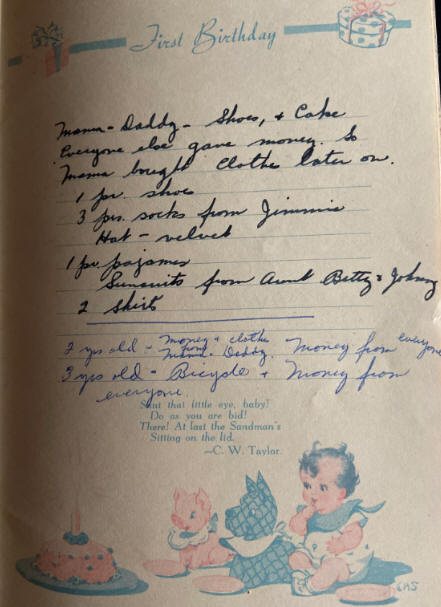 First Birthday
Mama - Daddy - Shoes, + Cake
Everyone else gave money. So
Mama bought Clothes later on.
1 pr. shoes
3 prs. socks from Jimmie
Hat - velvet
1 pr. pajamas
Sunsuits from Aunt Betty + Johnny
2 Shirts
2 yrs old - Money + clothes from Mama - Daddy. Money from everyone
3 yrs old - Bicycle + Money from
everyone.
Shut that little eye, baby!
Do as you are bid!
There! At last the Sandman's
Sitting on the lid.
~C. W. Taylor